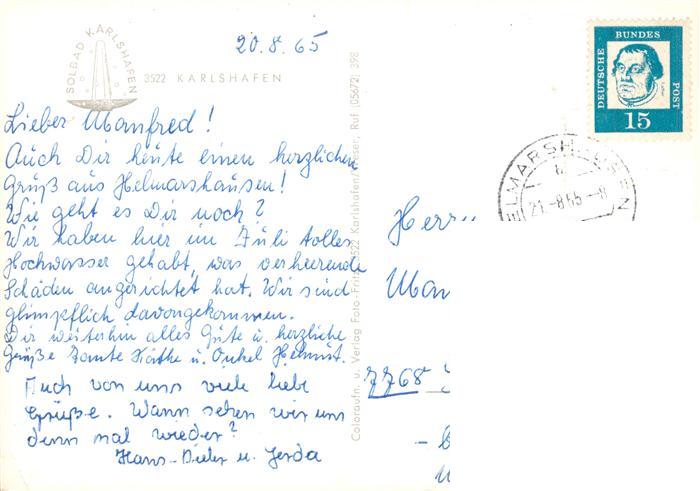 20.8.65
SOLBAD KARLSHAFEN
3522 KARLSHAFEN
Lieber Manfred!
Auch Dir heute einen herzlichen
Gruß aus Helmarshausen!
Wie geht es Dir noch?
Wir haben hier im Juli tolles
Hochwasser gehabt, was verheerende
Schäden angerichtet hat. Wir sind
glimpflich davongekommen.
Dir weiterhin alles Gute u. herzliche
Grüße Tante Käthe u. Onkel Helmut.
Auch von uns viele liebe
Grüße. Wann sehen wir uns
denn mal wieder?
Hans-Dieter u. Gerda
Coloraufn. u. Verlag Foto-Fri 3522 Karlshafen/Weser, Ruf (05672) 398
DEUTSCHE BUNDES POST
15
ELMARSHAUSEN
21.-8.65-8
Herr
Man
7768